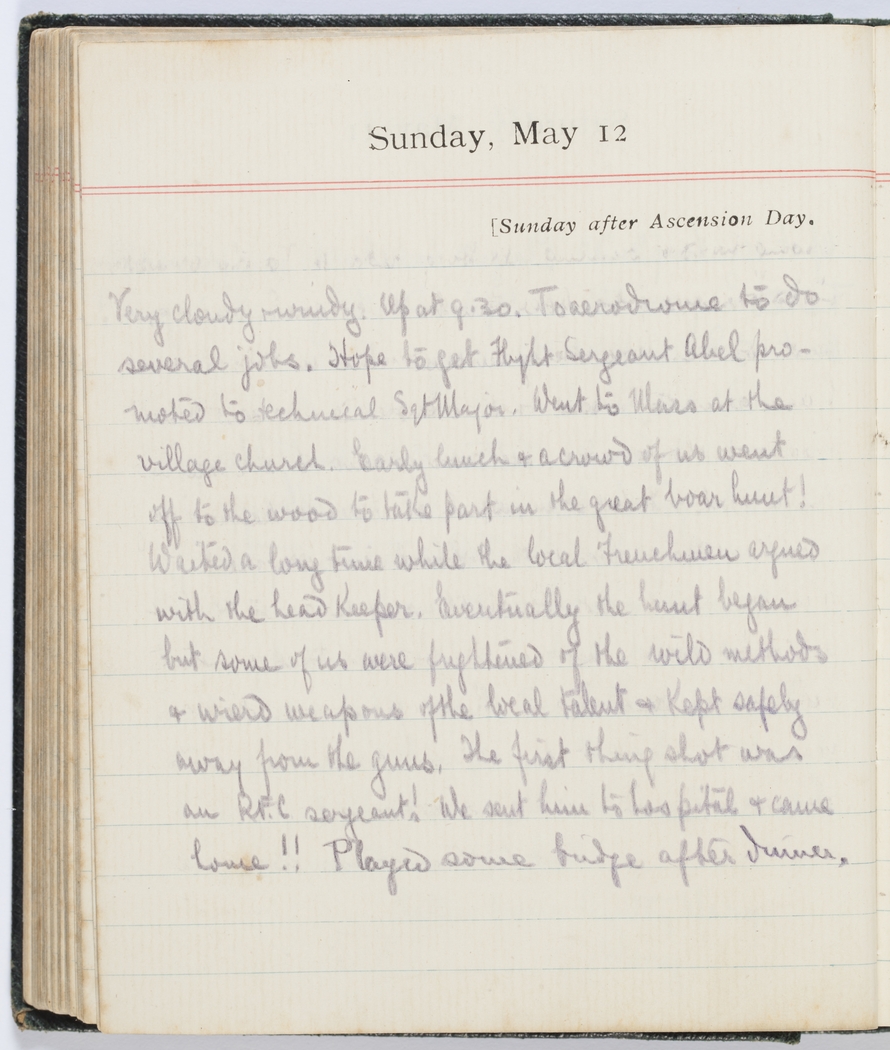 Sunday, May 12
[Sunday after Ascension Day.
Very cloudy & windy. Up at 9.30. To aerodrome to do
several jobs. Hope to get Flight Sergeant Abel pro-
moted to technical Sgt Major. Went to Mass at the
village church. Early lunch & a crowd of us went
off to the wood to take part in the great boar hunt!
Waited a long time while the local Frenchmen argued
with the head keeper. Eventually the hunt began
but some of us were frightened of the wild methods
& wierd weapons of the local talent & kept safely
away from the guns. The first thing shot was
an sergeant! We sent him to hospital & came
home!! Played some bridge after dinner.